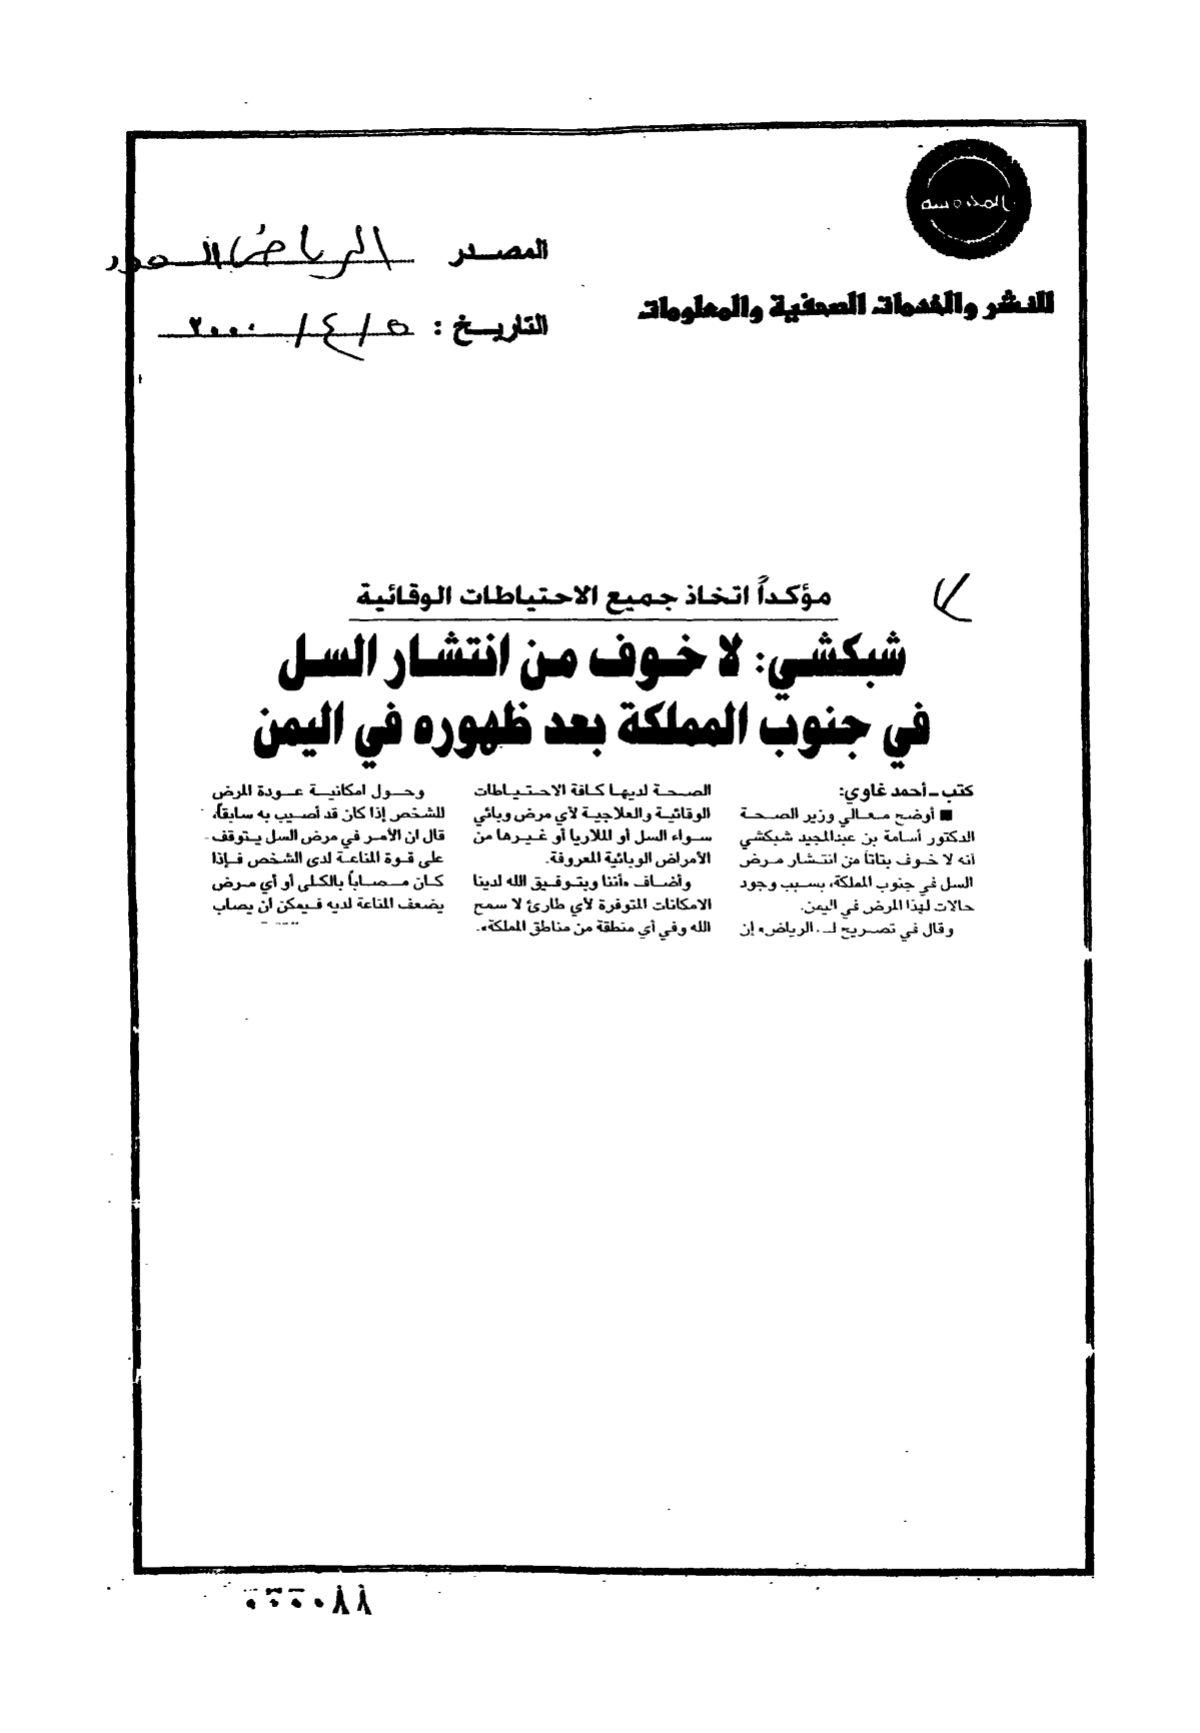 المحروسة
للنشر والخدمات الصحفية والمعلومات
المصدر الرياض السعود
التاريخ : ٥/٤/٢٠٠٠
مؤكداً اتخاذ جميع الاحتياطات الوقائية
شبكشي: لا خوف من انتشار السل
في جنوب المملكة بعد ظهوره في اليمن
كتب ـ أحمد غاوي:
■ أوضح معالي وزير الصحة
الدكتور أسامة بن عبدالمجيد شبكشي
أنه لا خوف بتاتاً من انتشار مرض
السل في جنوب المملكة، بسبب وجود
حالات لهذا المرض في اليمن.
وقال في تصريح لـ «الرياض» إن
الصحة لديها كافة الاحتياطات
الوقائية والعلاجية لأي مرض وبائي
سواء السل أو الملاريا أو غيرها من
الأمراض الوبائية المعروفة.
وأضاف «أننا وبتوفيق الله لدينا
الامكانات المتوفرة لأي طارئ لا سمح
الله وفي أي منطقة من مناطق المملكة».
وحول امكانية عودة المرض
للشخص إذا كان قد أصيب به سابقاً،
قال ان الأمر في مرض السل يتوقف
على قوة المناعة لدى الشخص فإذا
كان مصاباً بالكلى أو أي مرض
يضعف المناعة لديه فيمكن ان يصاب